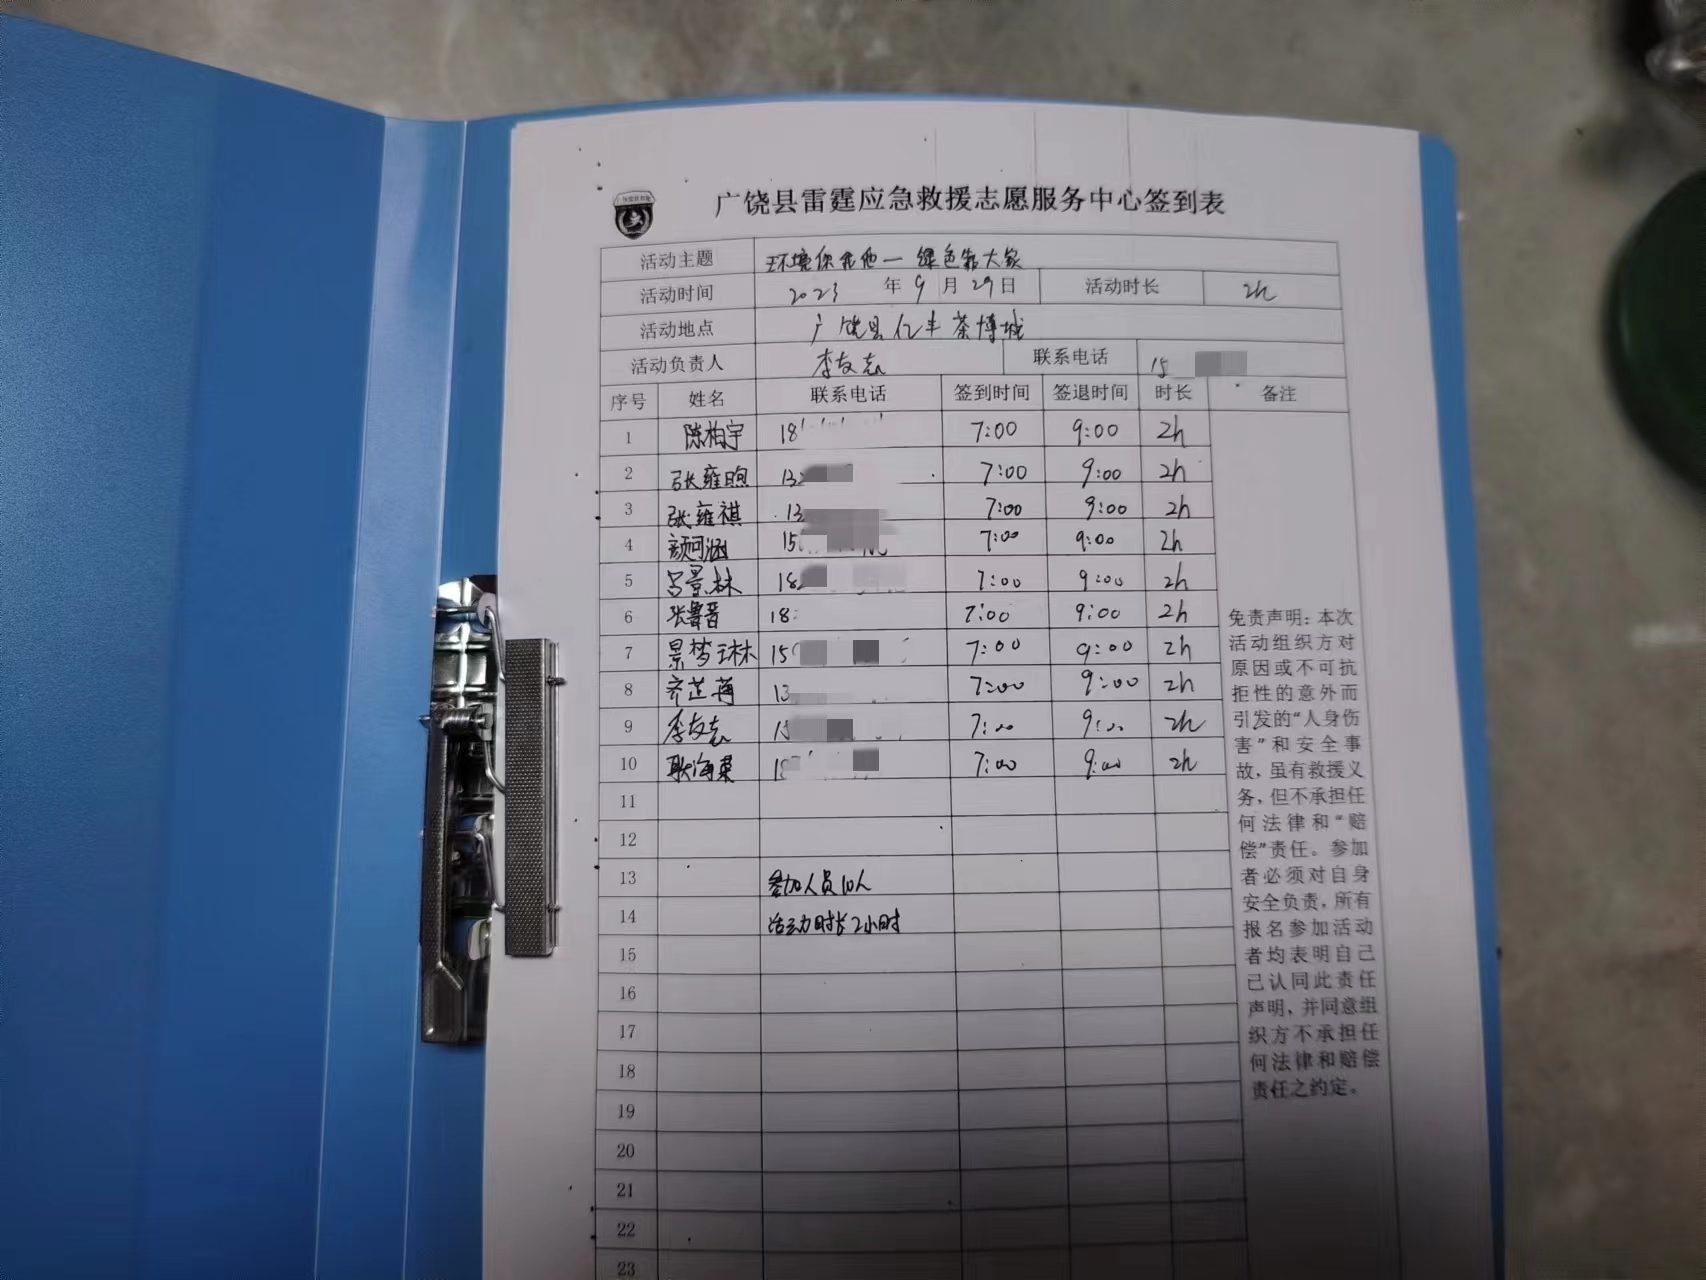 广饶县雷霆应急救援志愿服务中心签到表
活动主题 环境你我他一绿色靠大家
活动时间 2023 年 9 月 29 日 活动时长 2h
活动地点 广饶县亿丰茶博城
活动负责人 李友志 联系电话 15
序号 姓名 联系电话 签到时间 签退时间 时长 备注
1 陈柏宇 18 7:00 9:00 2h
2 张雍煦 132 7:00 9:00 2h
3 张雍祺 13 7:00 9:00 2h
4 颜可涵 15 7:00 9:00 2h
5 吕景林 18 7:00 9:00 2h
6 张鲁晋 18 7:00 9:00 2h
7 景梦琳 15 7:00 9:00 2h
8 齐芷 13 7:00 9:00 2h
9 李友志 15 7:00 9:00 2h
10 耿海 18 7:00 9:00 2h
11
12
13 参加人员10人
14 活动时长2小时
15
16
17
18
19
20
21
22
23
免责声明：本次
活动组织方对
原因或不可抗
拒性的意外而
引发的“人身伤
害”和安全事
故，虽有救援义
务，但不承担任
何法律和“赔
偿”责任。参加
者必须对自身
安全负责，所有
报名参加活动
者均表明自己
己认同此责任
声明，并同意组
织方不承担任
何法律和赔偿
责任之约定。